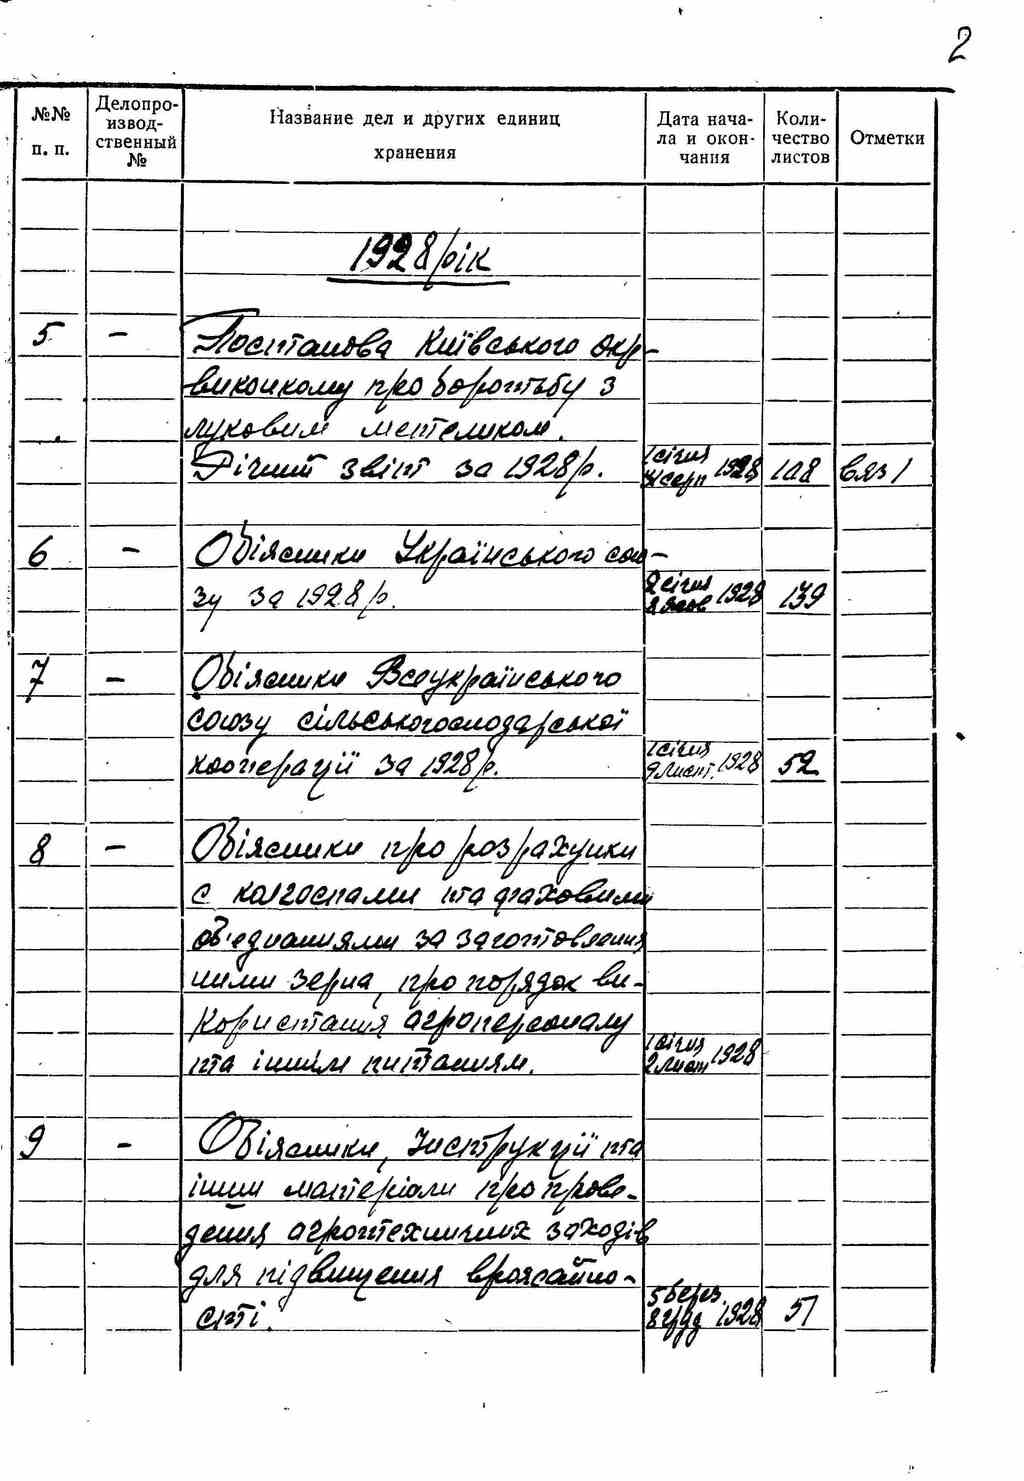 2
№№ п. п.
Делопро-
извод-
ственный
№
Название дел и других единиц
хранения
Дата нача-
ла и окон-
чания
Коли-
чество
листов
Отметки
1928 рік
5 – Постанова Київського окр-
виконкому про боротьбу з
луковим метеликом.
Річний звіт за 1928 р. 1 січня серп 1928 108 вяз 1
6 – Обіясники Українського сою-
зу за 1928 р. 2 січня 1928 139
7 – Обіясники Всеукраїнського
союзу сільськогосподарської
кооперації за 1928 р. 1 січня 9 лист. 1928 52
8 – Обіясники про розрахунки
с колгоспами та фаховими
об'єднаннями за заготовления
ними зерна, про порядок ви-
користання агроперсоналу
та іншим питанням. 1 січня 2 лист 1928
9 – Обіясники, Інструкції та
інши матеріали про прове-
дення агротехничних заходів
для підвищення врожайно-
сті. 5 берез. 8 груд 1928 51